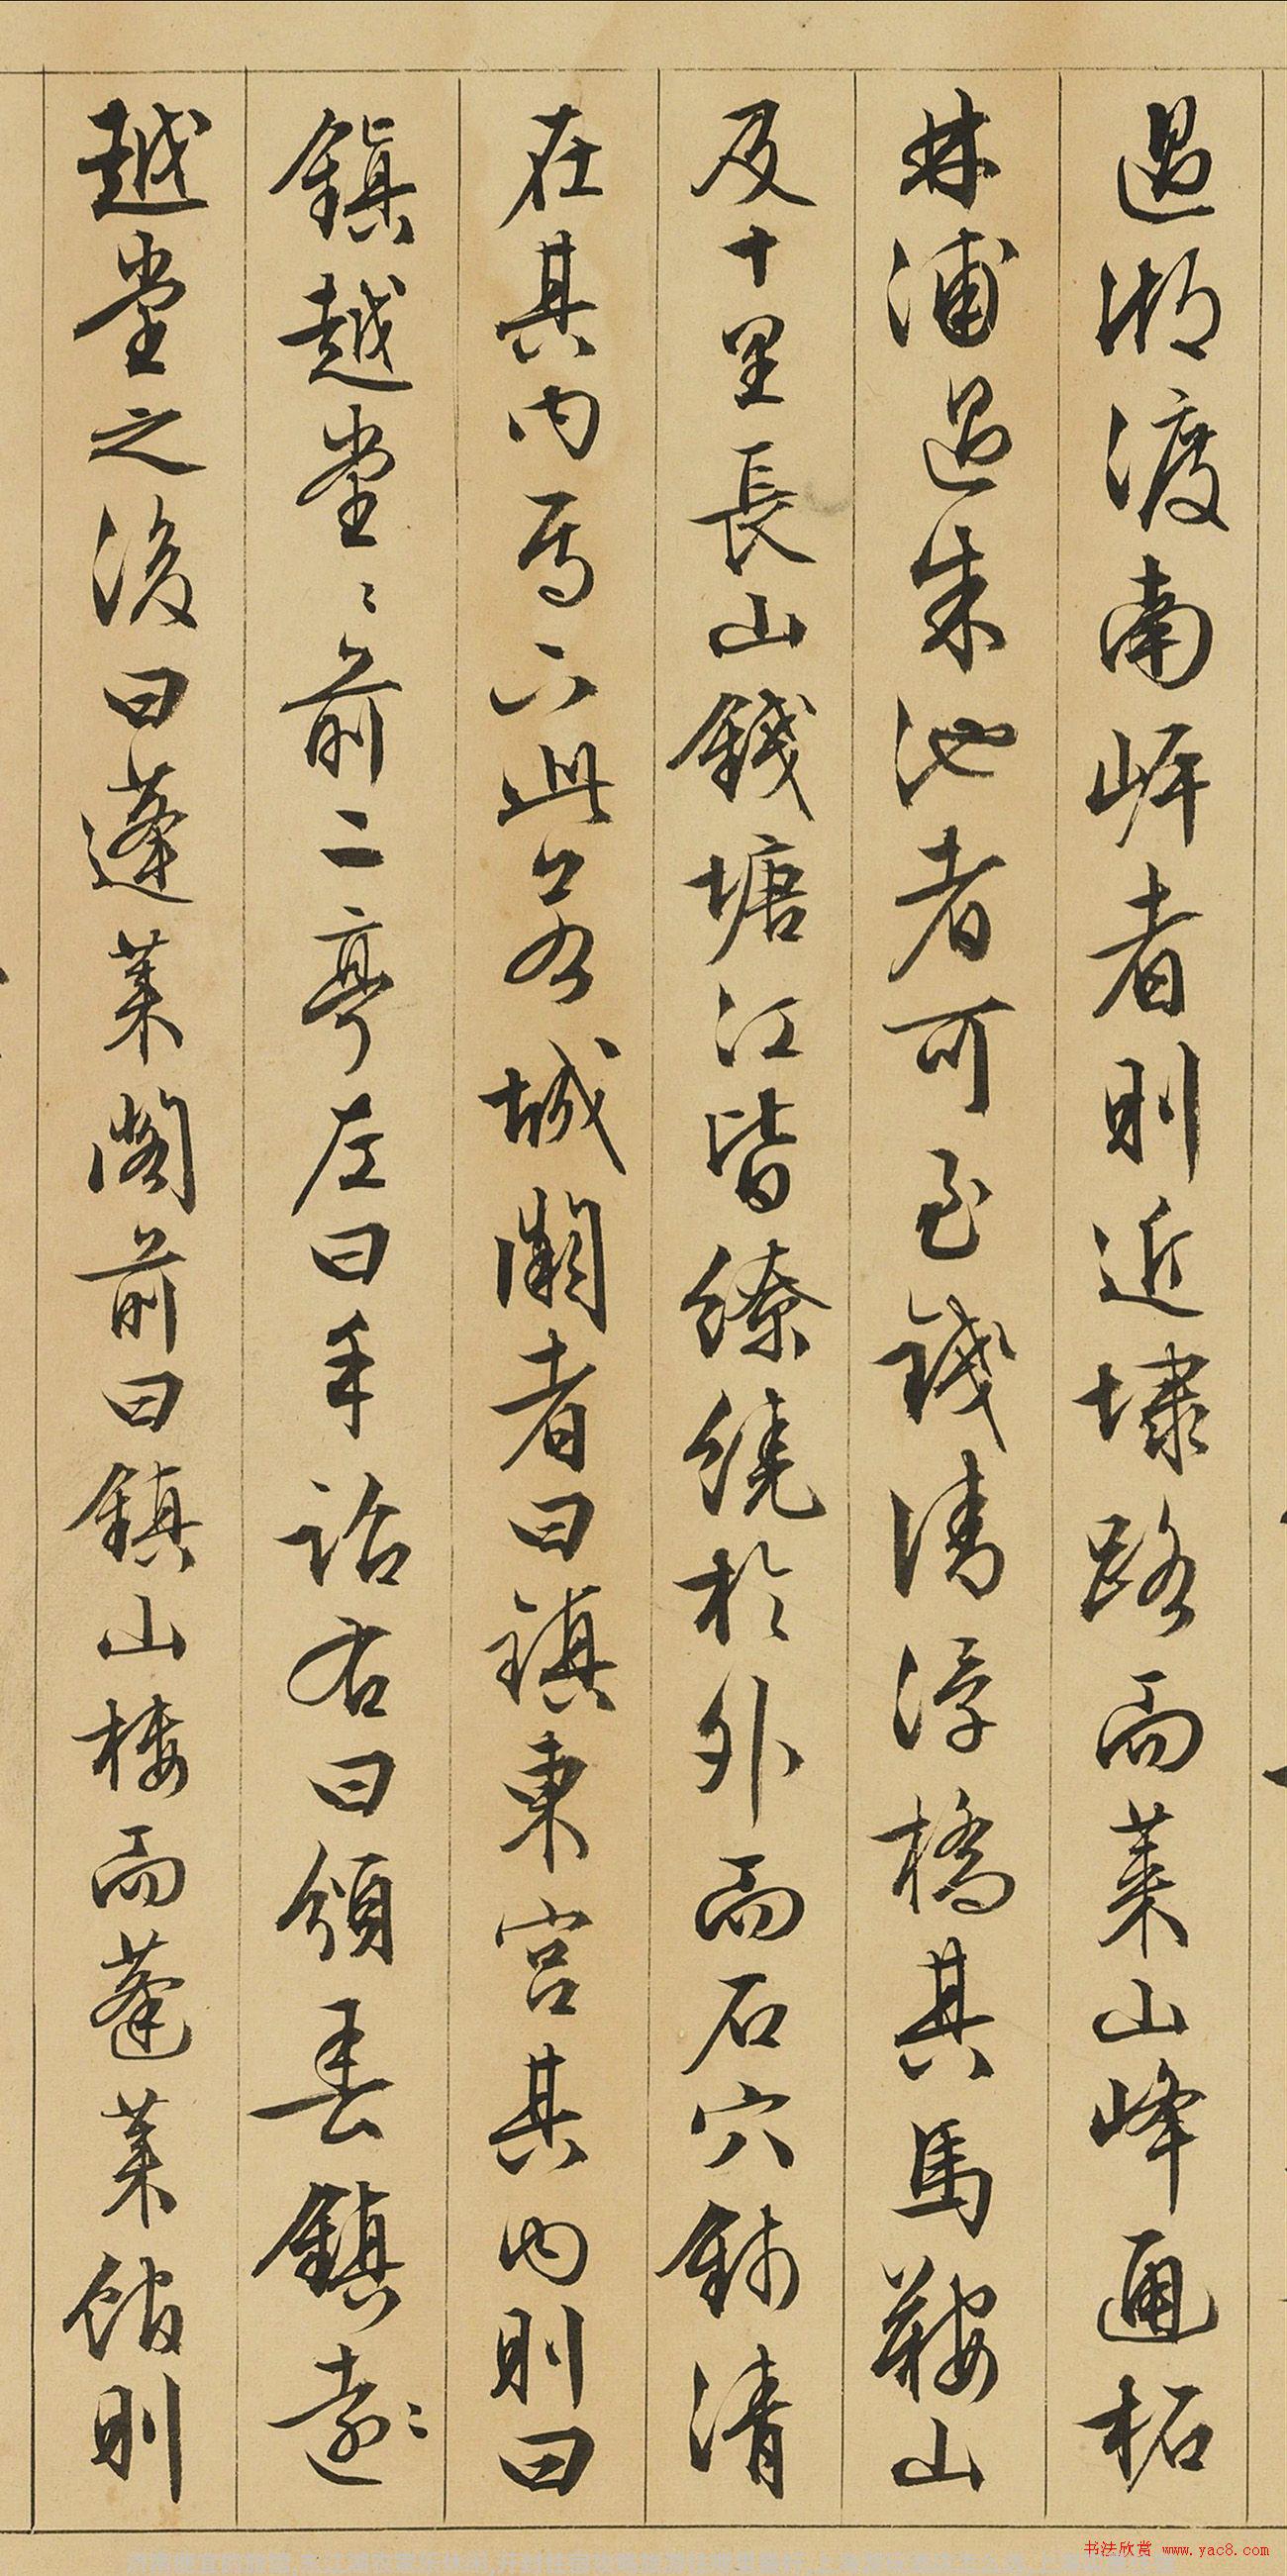 過湖渡南岸者則近埭路而萊山峰通柘
林浦過朱池者可至錢清浮橋其馬鞍山
及十里長山錢塘江皆繚繞於外而石穴錢清
在其内焉六此又名城闕者曰鎮東宮其内則曰
鎮越堂〻前二亭左曰手詔右曰頒春鎮越〻
越堂之後曰蓬萊閣前曰鎮山樓而蓬萊館則
书法欣赏 www.yac8.com